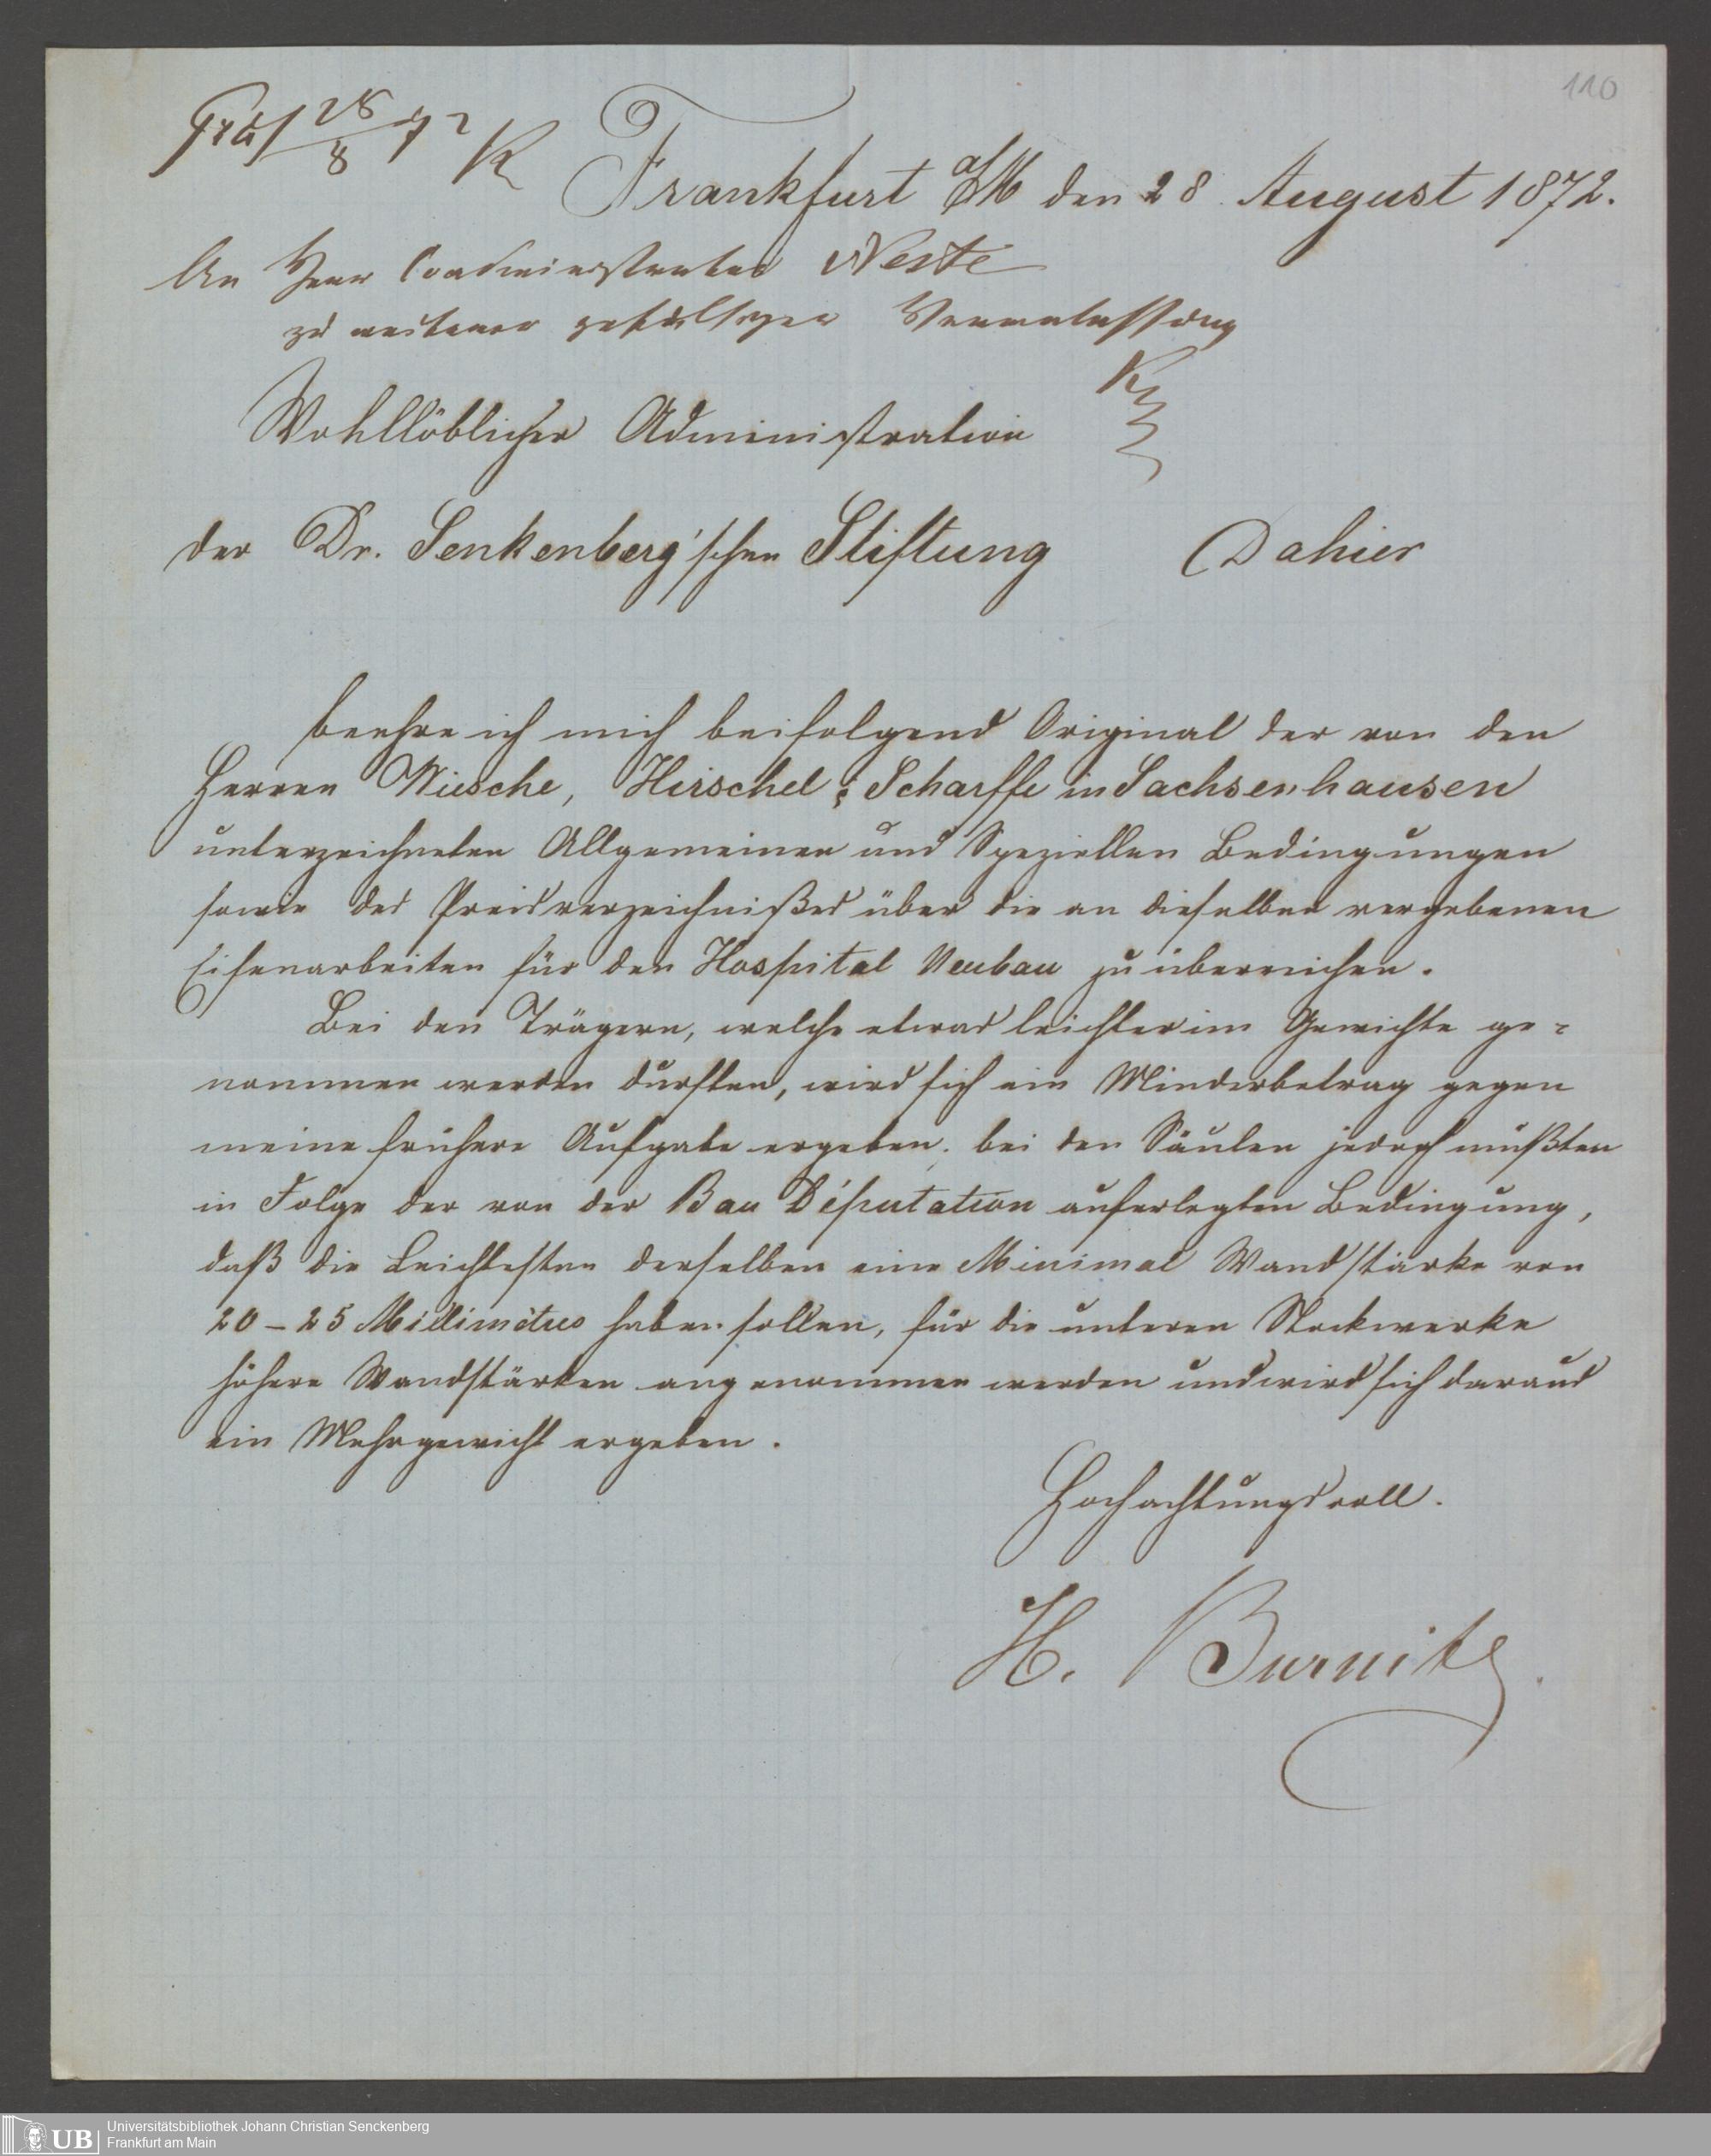 110
Präs 28/8 72 K
Frankfurt a/M den 28. August 1872.
An Herrn Coadministrator Neste
zu weiterer gefälligen Veranlassung
K
Wohllöblicher Administration
der Dr. Senkenberg'schen Stiftung Dahier
beehre ich mich beifolgend Original der von den
Herren Wiesche, Hirschel & Scharffe in Sachsenhausen
unterzeichneten Allgemeinen und Speziellen Bedingungen
sowie des Preisverzeichnißes über die an dieselben vergebenen
Eisenarbeiten für den Hospital Neubau zu überreichen.
Bei den Trägern, welche etwas leichter im Gewichte ge-
nommen werden durften, wird sich ein Minderbetrag gegen
meine frühere Aufgabe ergeben. bei den Säulen jedoch mußten
in Folge der von der Bau Députation auferlegten Bedingung,
daß die Leichtesten derselben eine Minimal Wandstärke von
20-25 Millimètres haben sollen, für die unteren Stockwerke
höhere Wandstärken angenommen werden und wird sich daraus
ein Mehrgewicht ergeben.
Hochachtungsvoll.
H. Burnitz.
UB Universitätsbibliothek Johann Christian Senckenberg
Frankfurt am Main